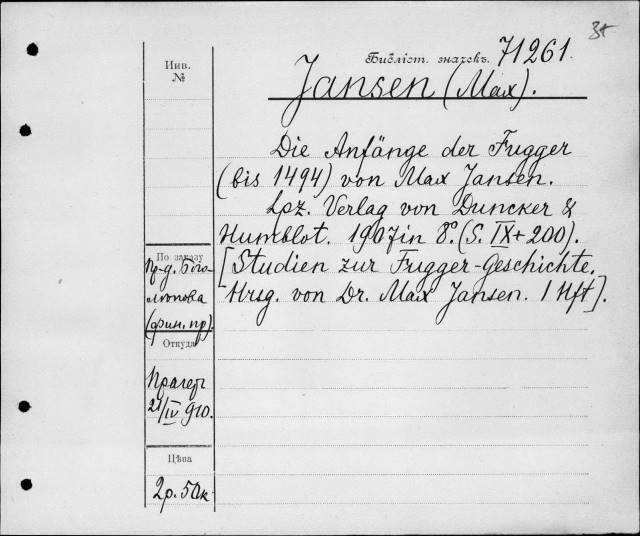 Библіот. значекъ. 71261.
Jansen (Max).
Die Anfänge der Fugger
(bis 1494) von Max Jansen.
Lpz. Verlag von Duncker &
Humblot. 1907 in 8º. (S. IX + 200).
[Studien zur Fugger-Geschichte.
Hrsg. von Dr. Max Jansen. 1 Hft].
Инв.
№
По заказу
(фин. пр).
Откуда
Прагеръ
21/IV 910.
Цѣна
2р. 50к